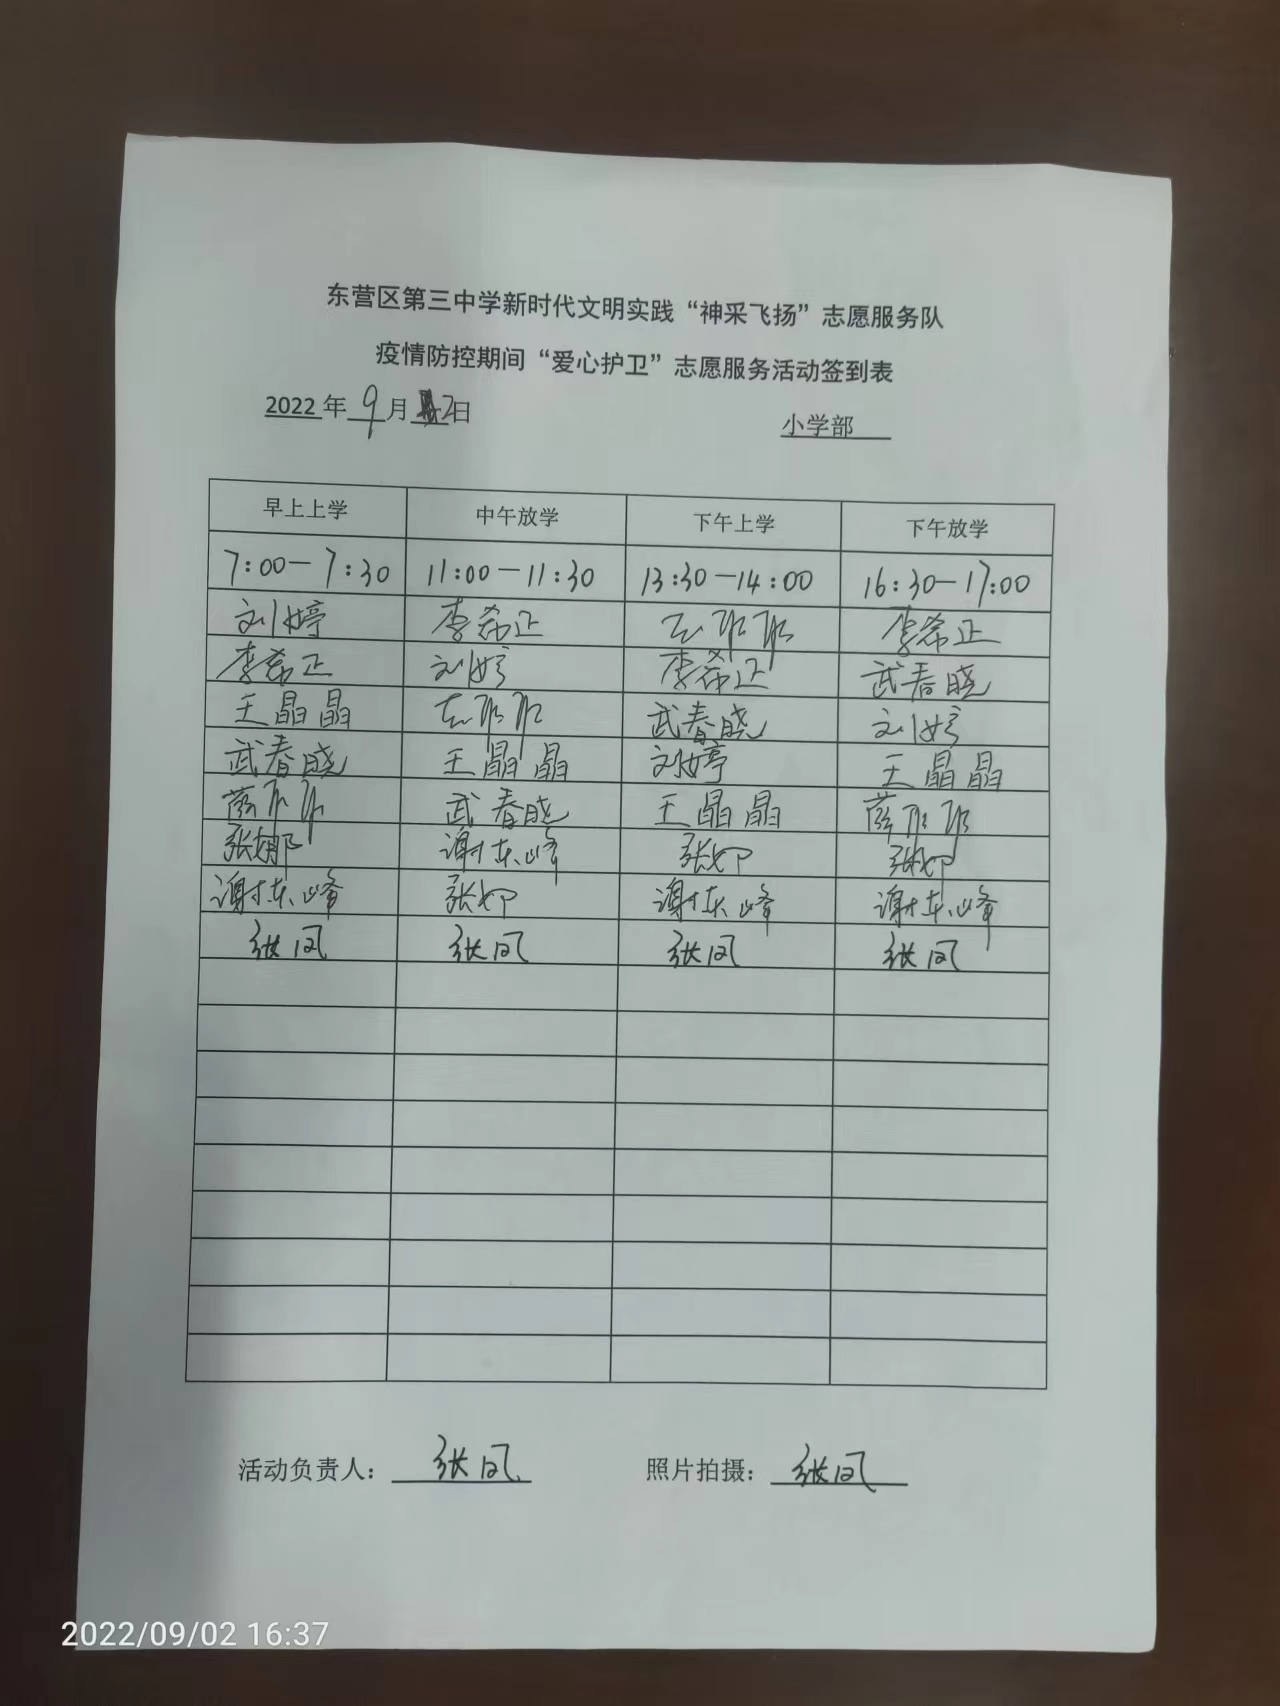 东营区第三中学新时代文明实践“神采飞扬”志愿服务队
疫情防控期间“爱心护卫”志愿服务活动签到表
2022年9月2日 小学部
早上上学 中午放学 下午上学 下午放学
7:00-7:30 11:00-11:30 13:30-14:00 16:30-17:00
刘婷 李希正 李希正
李希正 刘婷 李希正 武春晓
王晶晶 武春晓 刘婷
武春晓 王晶晶 刘婷 王晶晶
武春晓 王晶晶
张娜 谢东峰 张娜 张娜
谢东峰 张娜 谢东峰 谢东峰
张凤 张凤 张凤 张凤
活动负责人：张凤 照片拍摄：张凤
2022/09/02 16:37